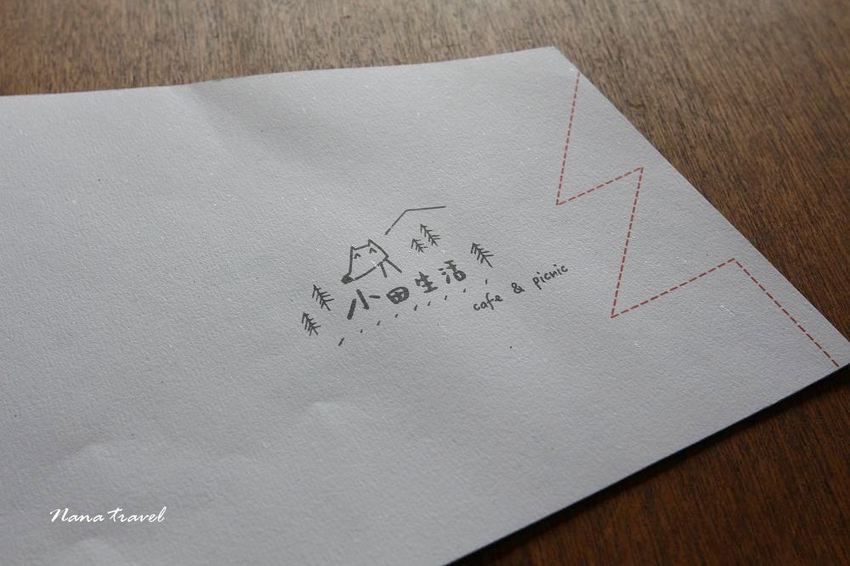 小田生活
cafe & picnic
Nana Travel